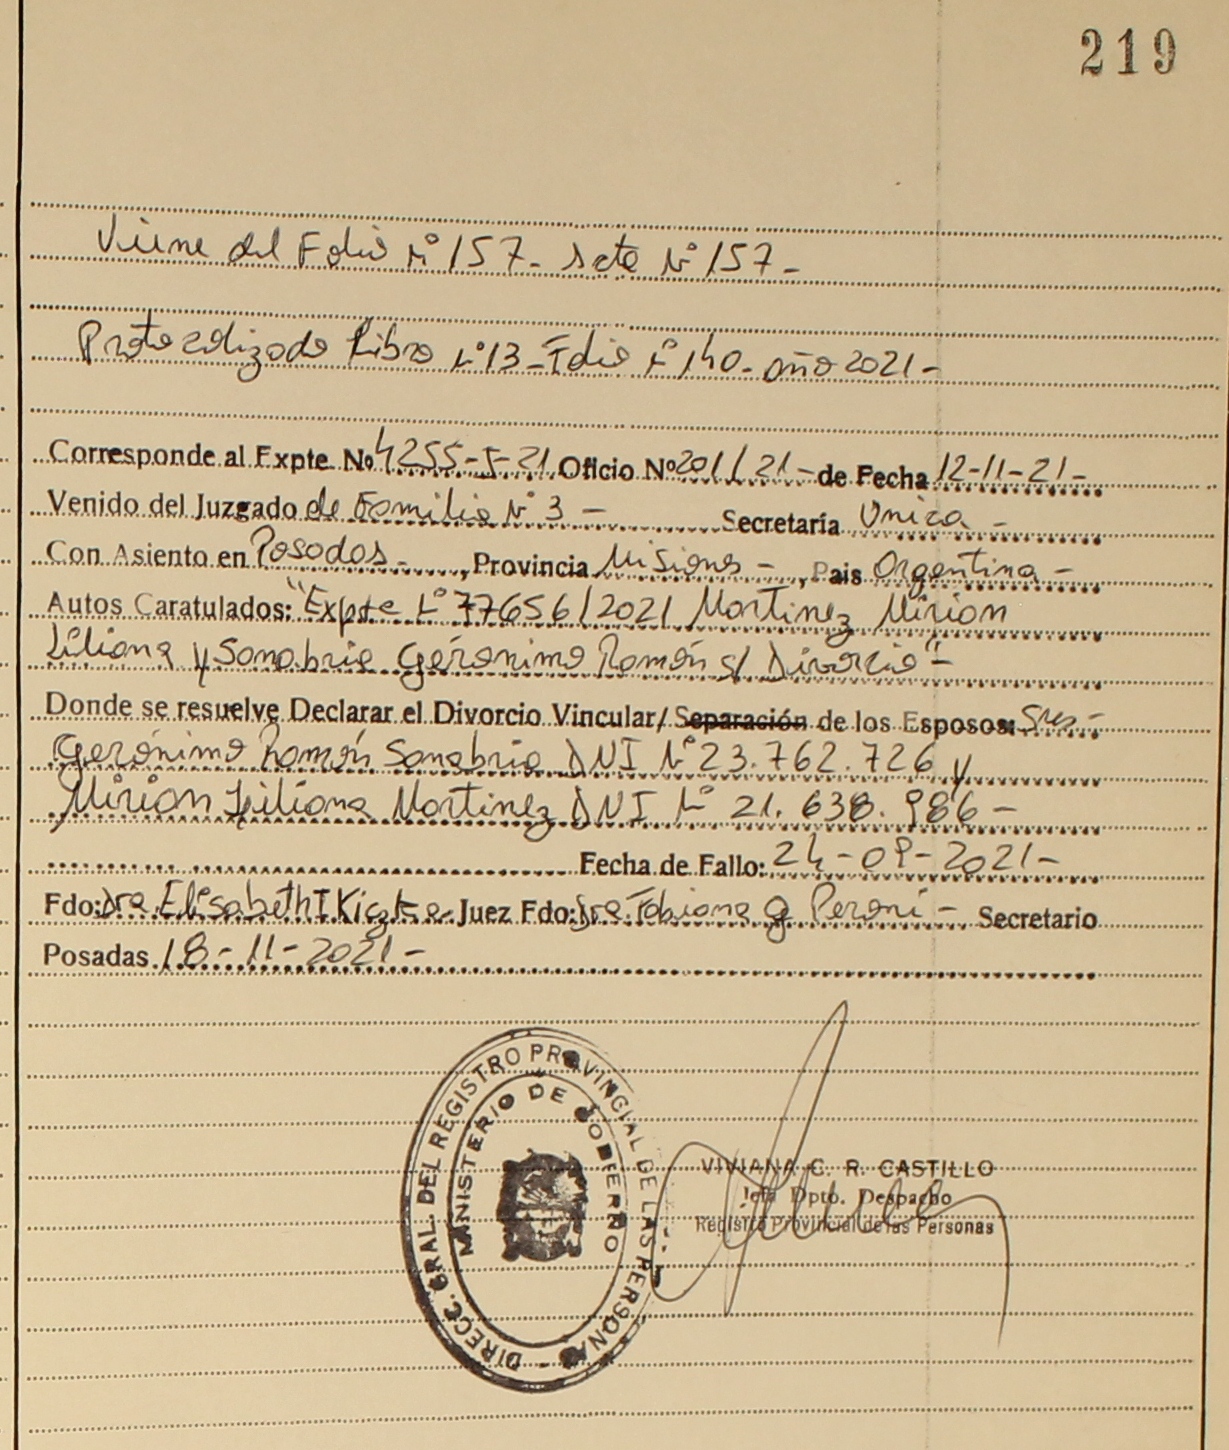 219
Viene del Folio Nº 157- Acta Nº 157-
Protocolizado Libro Nº 13- Folio Nº 140- año 2021-
Corresponde al Expte Nº 4255-5-21 Oficio Nº 201/21- de Fecha 12-11-21-
Venido del Juzgado de Familia Nº 3 - Secretaría Unica -
Con Asiento en Posadas -, Provincia Misiones -, Pais Argentina -
Autos Caratulados: "Expte Nº 77656/2021 Martinez Mirian
Liliana y Sanabria Gerónimo Ramón s/ Divorcio"-
Donde se resuelve Declarar el Divorcio Vincular/ Separación de los Esposos: Sres-
Gerónimo Ramón Sanabria DNI Nº 23.762.726 y
Mirian Liliana Martinez DNI Nº 21.638.986 -
Fecha de Fallo: 24-09-2021-
Fdo: Dra Elisabeth I Kiczka- Juez Fdo: Dra Fabiana G Peroni - Secretario
Posadas 18-11-2021-
DIRECC. GRAL. DEL REGISTRO PROVINCIAL DE LAS PERSONAS -
MINISTERIO DE GOBIERNO
VIVIANA C. R. CASTILLO
Jefa Dpto. Despacho
Registro Provincial de las Personas